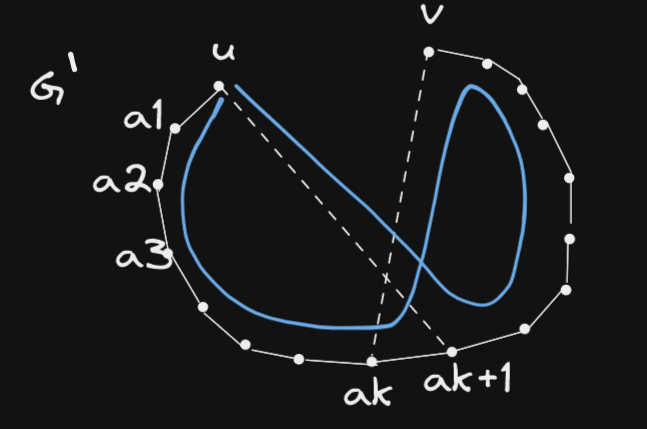 v
u
G'
a1
a2
a3
ak
ak+1